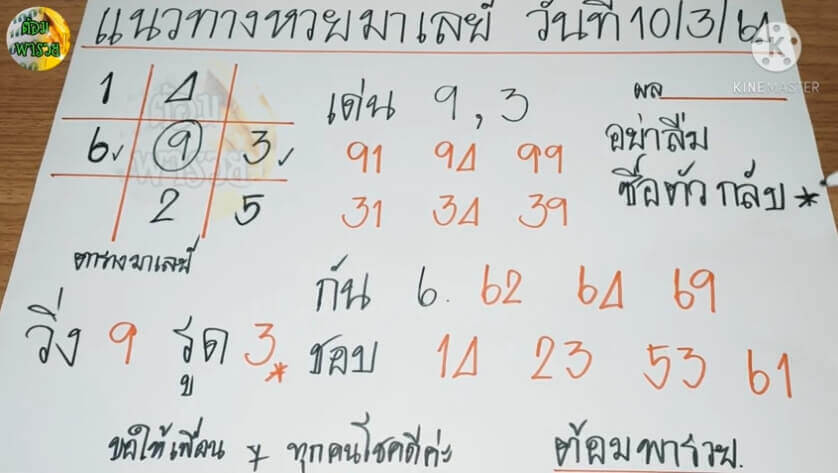 แนวทางหวยมาเลย์ วันที่ 10/3/64
ต้อม
พารวย
KINEMASTER
1 4
6 9 3
2 5
ตารางมาเลย์
เด่น 9,3
91 94 99
31 34 39
ผล
อย่าลืม
ซื้อตัวกลับ *
กัน 6. 62 64 69
วิ่ง 9 รูด 3 *
ชอบ 14 23 53 61
ขอให้เพื่อน ๆ ทุกคนโชคดีค่ะ
ต้อมพารวย.